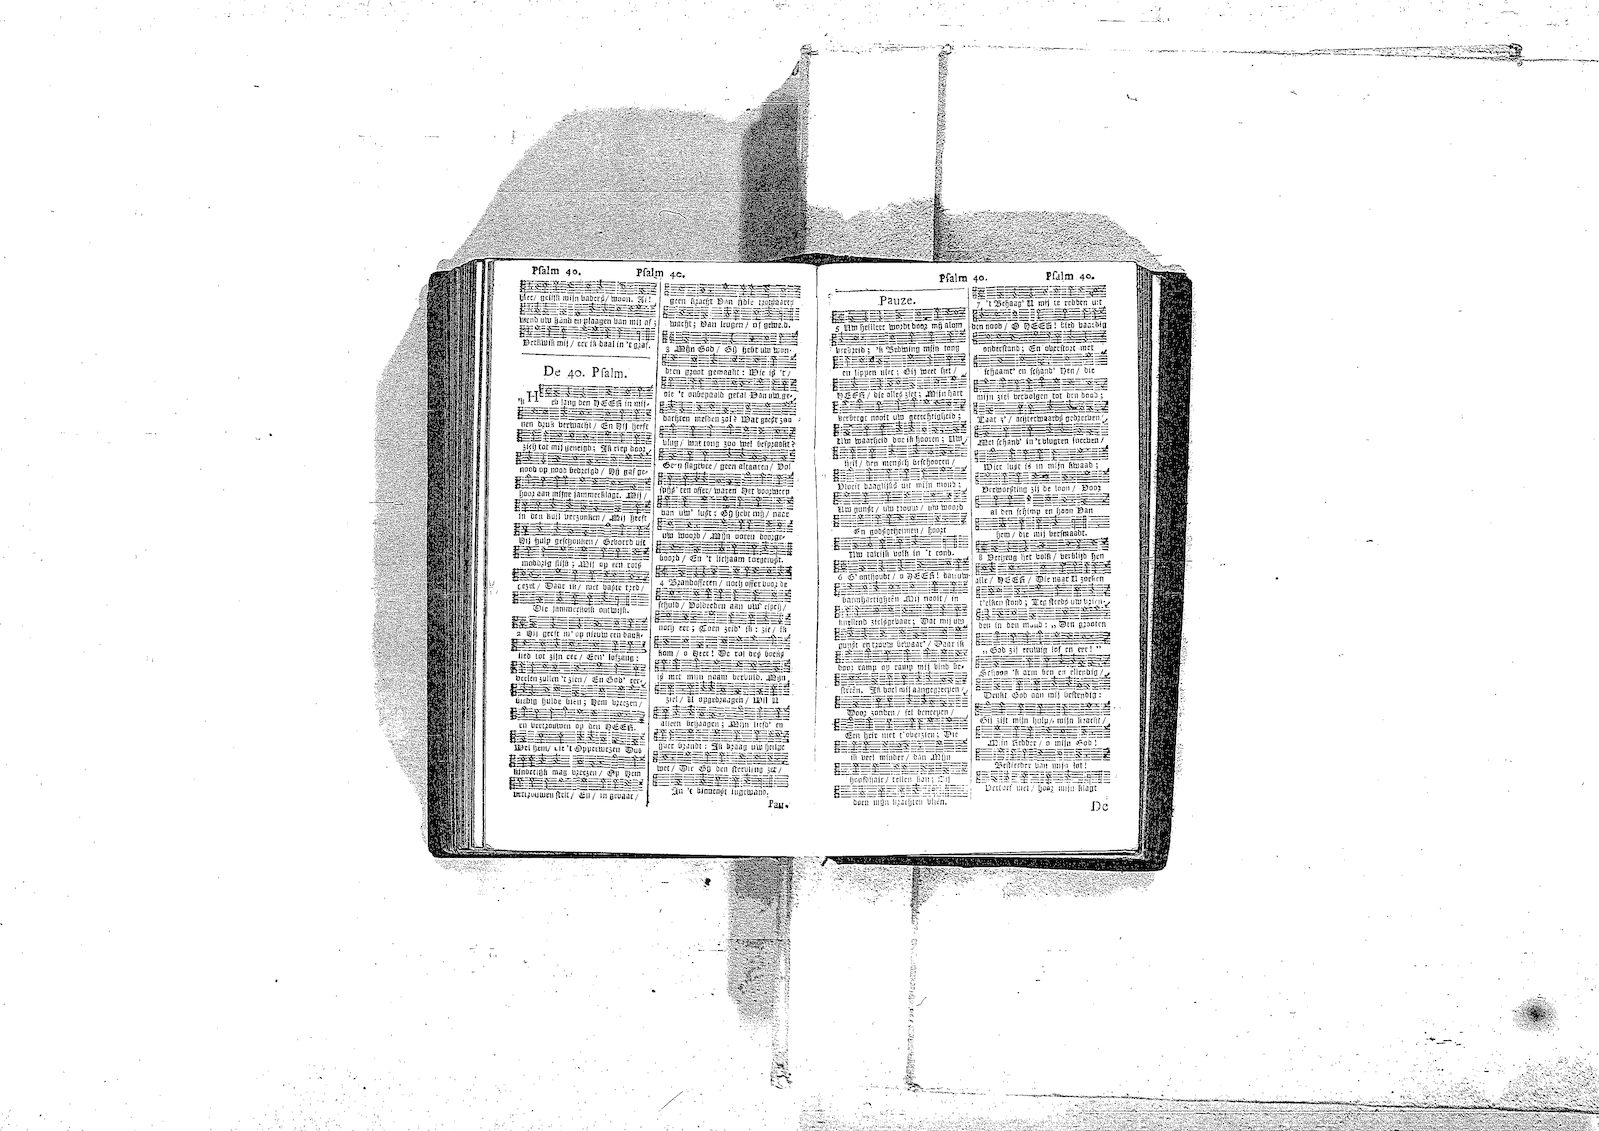 Psalm 40.
Psalm 40.
vier/ gelijk mijn vaders/ woon. Ai!
wend uw hand en plaagen van mij af;
Verkwik mij/ eer ik daal in 't graf.
De 40. Psalm.
'k Heb lang den HEER in mij-
nen druk verwacht/ En Hij heeft
zich tot mij geneigd; Ik riep door
nood op nood bedreigd/ Hij gaf ge-
hoor aan mijne jammerklagt. Mij/
in den kuil verzonken/ Mij heeft
Hij hulp geschonken/ Gevoerd uit
modd'rig slijk; Mij op een rots
gezet/ Daar ik/ met vaste tred/
Die jammerkolk ontwijk.
2 Hij geeft m' op nieuw een dank-
lied tot zijn eer/ Een' lofzang:
veelen zullen 't zien/ En God' eer-
biedig hulde bien; Hem vreezen/
en vertrouwen op den HEER.
Wel hem/ die 't Opperwezen Dus
kinderlijk mag vreezen/ Op Hem
vertrouwen stelt/ En/ in gevaar/
geen kracht Van ijdle trotsaarts
wacht; Van leugen/ of geweld.
3 Mijn God/ Gij hebt uw won-
dren groot gemaakt: Wie is 't/
die 't onbepaald getal Van uw ge-
dachten melden zal? Wat geest zoo
vlug/ wat tong zoo wel bespraakt?
Geen slagtvee/ geen altaaren/ Vol
spijs' ten offer/ waren Het voorwerp
van uw' lust: Gij hebt mij/ naar
uw woord/ Mijn ooren doorge-
boord/ En 't lichaam toegerust.
4 Brandofferen/ noch offer voor de
schuld/ Voldeeden aan uw' eisch/
noch eer; Toen zeid' ik: zie/ ik
kom/ o Heer! De rol des boeks
is met mijn naam vervuld. Mijn
ziel/ U opgedraagen/ Wil U
alleen behaagen; Mijn liefd' en
ijver brandt: Ik draag uw heilge
wet/ Die Gij den sterveling zet/
In 't binnenst ingewand.
Pau.
Psalm 40.
Psalm 40.
Pauze.
5 Uw heilleer wordt door mij alom
verbreid; 'k Bedwing mijn tong
en lippen niet; Gij weet het/
HEER/ die alles ziet; Mijn hart
verbergt nooit uw gerechtigheid;
Uw waarheid doe ik hooren; Uw
heil/ den mensch beschooren/
Vloeit daaglijks uit mijn mond;
Uw gunst/ uw trouw/ uw woord
En godsgeheimen/ hoort
Uw talrijk volk in 't rond.
6 G' onthoudt/ o HEER! dan uw
barmhartigheên Mij nooit/ in
knellend zielsgevaar; Dat mij uw
gunst en trouw bewaar'/ Daar ik
door ramp op ramp mij vind be-
streên. Ik voel mij aangegreepen/
Door zonden/ fel benepen/
Een heir niet t'overzien; Die
ik veel minder/ dan Mijn
hoofdhair/ tellen kan; Dit
doen mijn krachten vliên.
7 't Behaag' U mij te redden uit
den nood/ O HEER! bied vaardig
onderstand; En overstort met
schaamt' en schand' Hen/ die
mijn ziel vervolgen tot den dood;
Laat z'/ achterwaards gedreeven/
Met schand' in 't vlugten sneeven/
Wier lust is in mijn kwaad;
Verwoesting zij de loon/ Voor
al den schimp en hoon Van
hem/ die mij versmaadt.
8 Verheug het volk/ verblijd hen
alle/ HEER/ Die naar U zoeken
t'elken stond; Leg steeds uw vrien-
den in den mond: „ Den grooten
„ God zij eeuwig lof en eer! ”
Schoon 'k arm ben en ellendig/
Denkt God aan mij bestendig:
Gij zijt mijn hulp/ mijn kracht/
Mijn Redder/ o mijn God!
Bestierder van mijn lot!
Vertoef niet/ hoor mijn klagt
De